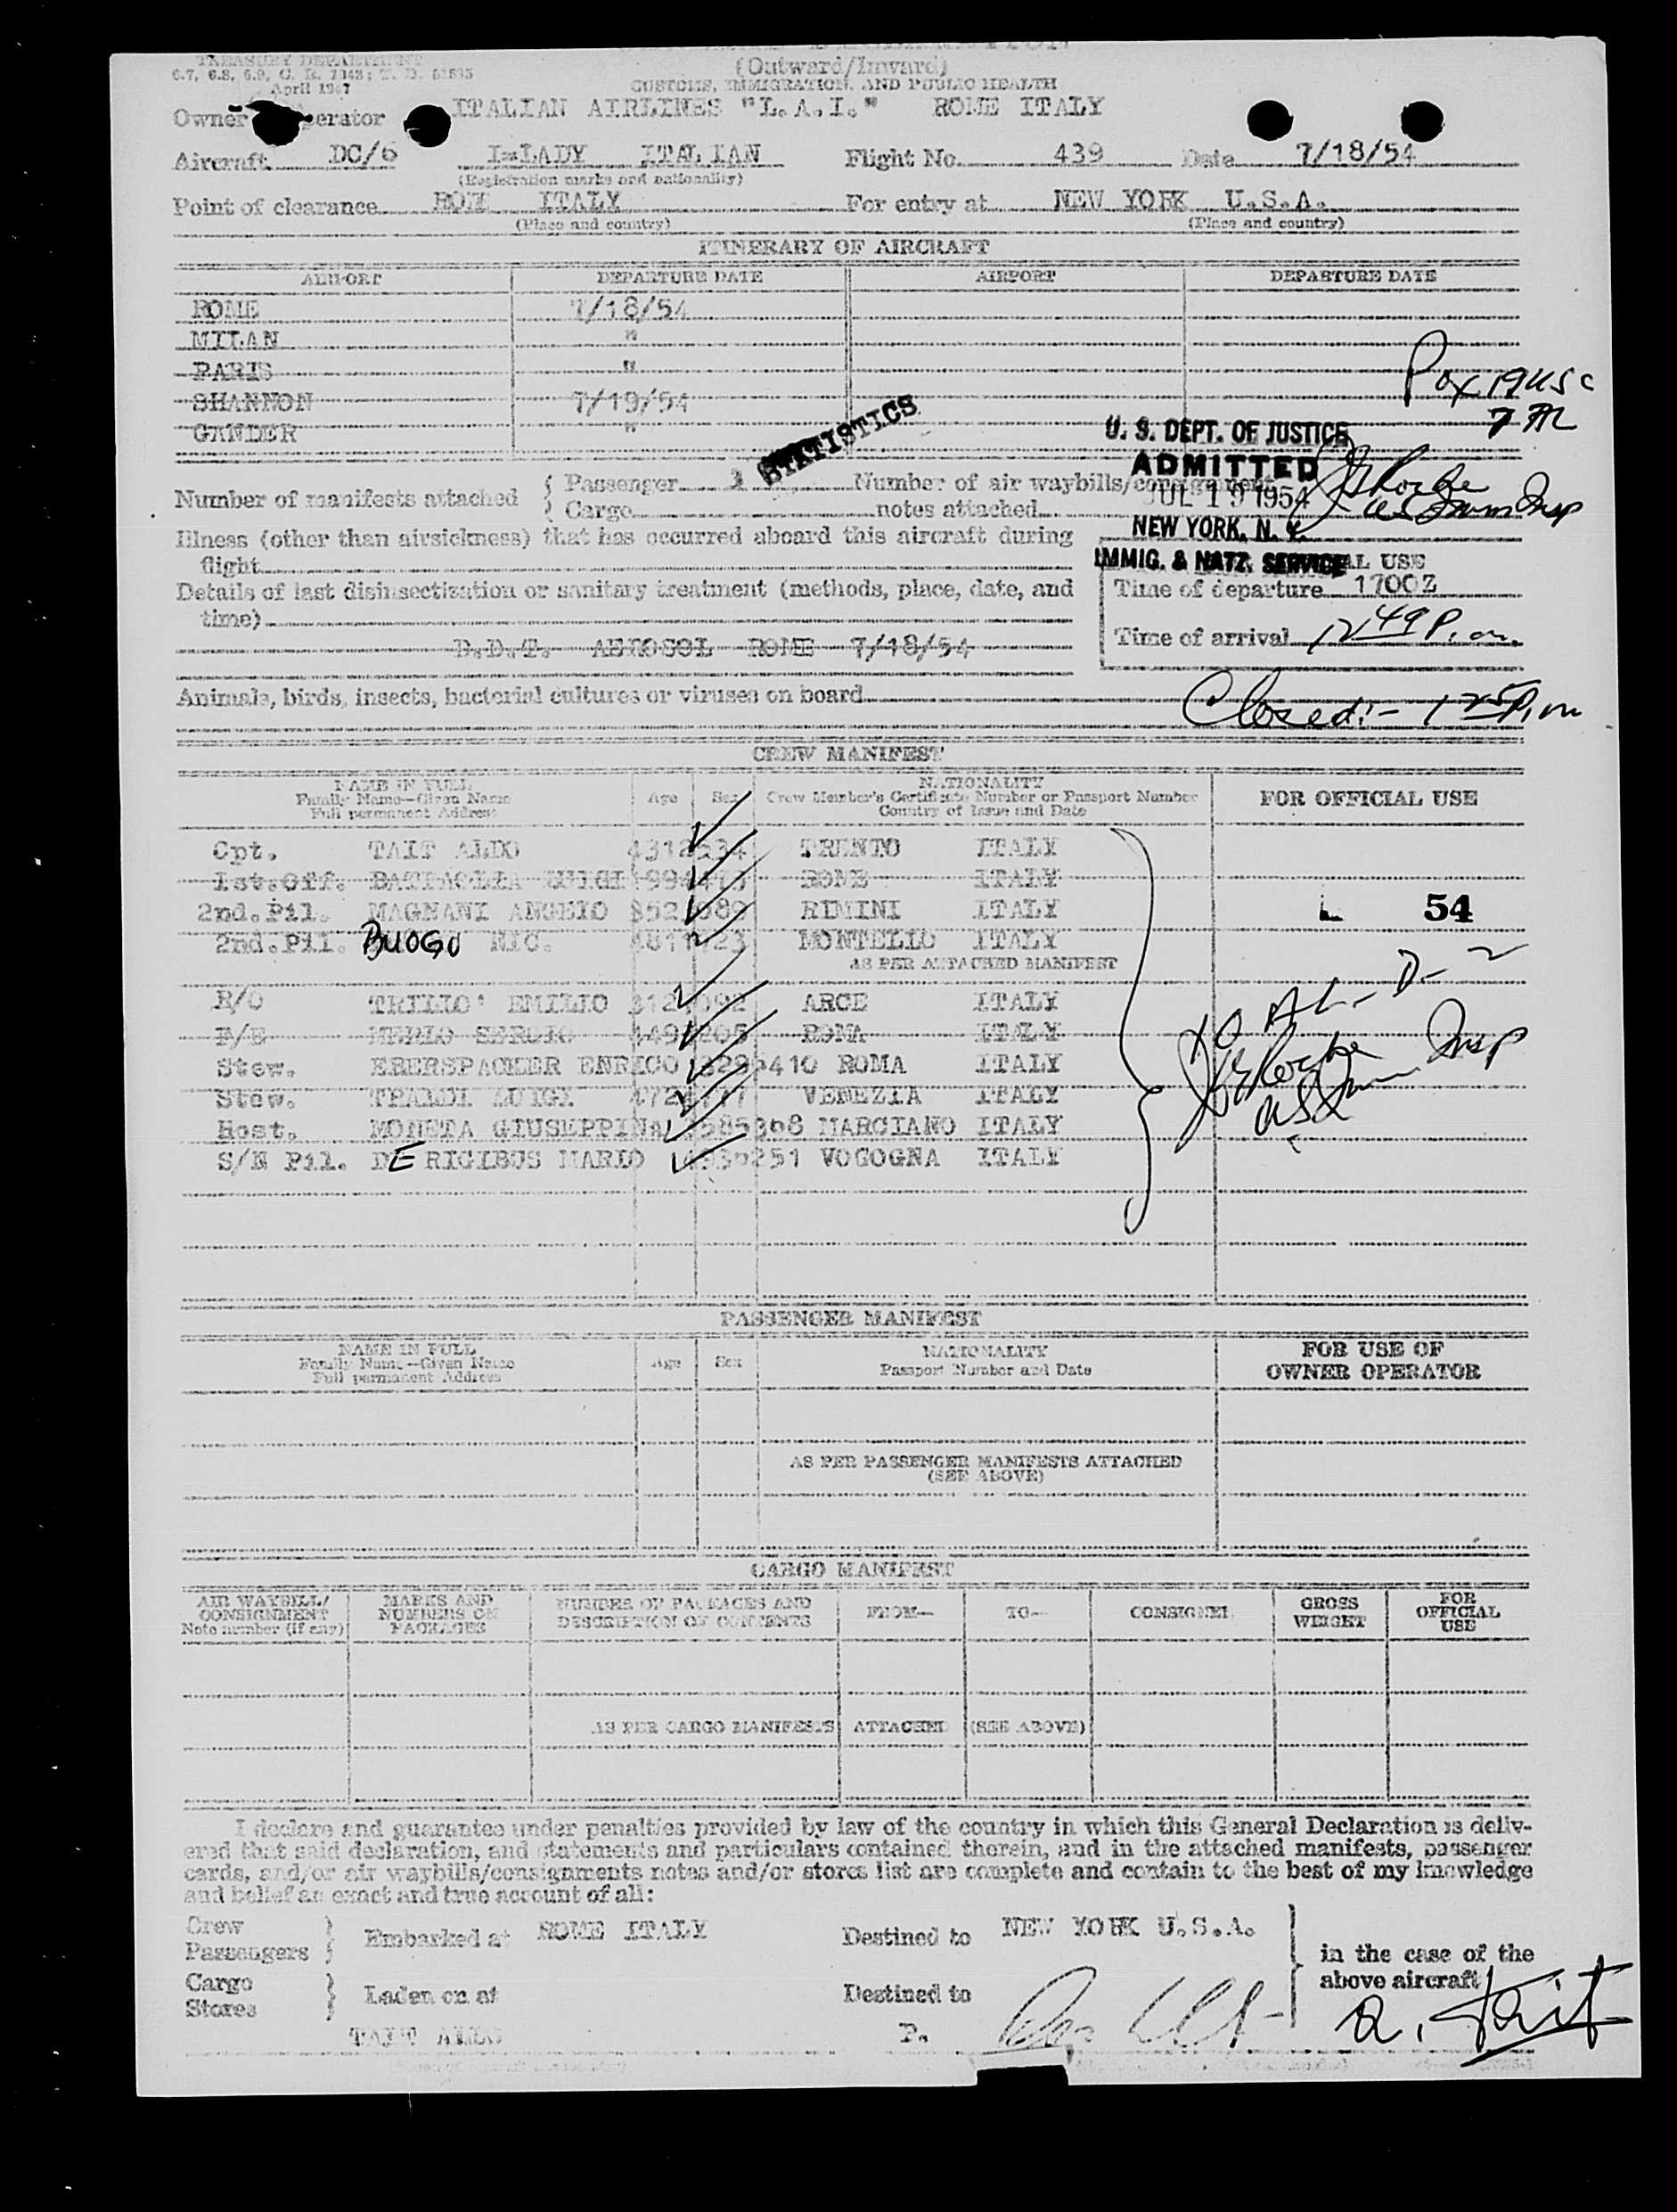 TREASURY DEPARTMENT
April 1947
(Outward/Inward)
CUSTOMS, IMMIGRATION, AND PUBLIC HEALTH
Owner erator ITALIAN AIRLINES "L.A.I." ROME ITALY
Aircraft DC/6 I=LADY ITALIAN Flight No. 439 Date 7/18/54
(Registration marks and nationality)
Point of clearance ROME ITALY For entry at NEW YORK U.S.A.
(Place and country) (Place and country)
ITINERARY OF AIRCRAFT
AIRPORT DEPARTURE DATE AIRPORT DEPARTURE DATE
ROME 7/18/54
MILAN "
PARIS "
SHANNON 7/19/54
GANDER "
STATISTICS
U. S. DEPT. OF JUSTICE
ADMITTED
JUL 19 1954
NEW YORK, N. Y.
IMMIG. & NATZ. SERVICE
Number of manifests attached { Passenger Number of air waybills/consignment
Cargo notes attached
Illness (other than airsickness) that has occurred aboard this aircraft during
flight
AL USE
Details of last disinsectization or sanitary treatment (methods, place, date, and
time)
Time of departure 1700Z
D.D.T. AEROSOL ROME 7/18/54
Time of arrival 12 49 P. m.
Animals, birds, insects, bacterial cultures or viruses on board
Closed:- 1 25 P.m
CREW MANIFEST
NAME IN FULL
Family Name—Given Name
Full permanent Address
Age Sex
NATIONALITY
Crew Member's Certificate Number or Passport Number
Country of Issue and Date
FOR OFFICIAL USE
Cpt. TAIT ALDO TRENTO ITALY
1st.Off. BATTAGLIA LUIGI ROME ITALY
2nd.Pil. MAGNANI ANGELO RIMINI ITALY
54
2nd.Pil. BUOGO NIC. MONTELLO ITALY
AS PER ATTACHED MANIFEST
R/O TRILLO' EMILIO ARCE ITALY
F/E MERLO SERGIO ROMA ITALY
Stew. EBERSPACHER ENRICO ROMA ITALY
Stew. TRALDI LUIGI VENEZIA ITALY
Host. MONETA GIUSEPPINA MARCIANO ITALY
S/N Pil. DE RIGIBUS MARIO VOGOGNA ITALY
PASSENGER MANIFEST
NAME IN FULL
Family Name—Given Name
Full permanent Address
Age Sex
NATIONALITY
Passport Number and Date
FOR USE OF
OWNER OPERATOR
AS PER PASSENGER MANIFESTS ATTACHED
(SEE ABOVE)
CARGO MANIFEST
AIR WAYBILL/
CONSIGNMENT
Note number (if any)
MARKS AND
NUMBERS ON
PACKAGES
NUMBER OF PACKAGES AND
DESCRIPTION OF CONTENTS
FROM—
TO—
CONSIGNEE
GROSS
WEIGHT
FOR
OFFICIAL
USE
AS PER CARGO MANIFESTS ATTACHED (SEE ABOVE)
I declare and guarantee under penalties provided by law of the country in which this General Declaration is deliv-
ered that said declaration, and statements and particulars contained therein, and in the attached manifests, passenger
cards, and/or air waybills/consignments notes and/or stores list are complete and contain to the best of my knowledge
and belief an exact and true account of all:
Crew
Passengers } Embarked at ROME ITALY Destined to NEW YORK U.S.A.
in the case of the
above aircraft
Cargo
Stores } Laden on at Destined to
A. Tait
TAIT ALDO P.